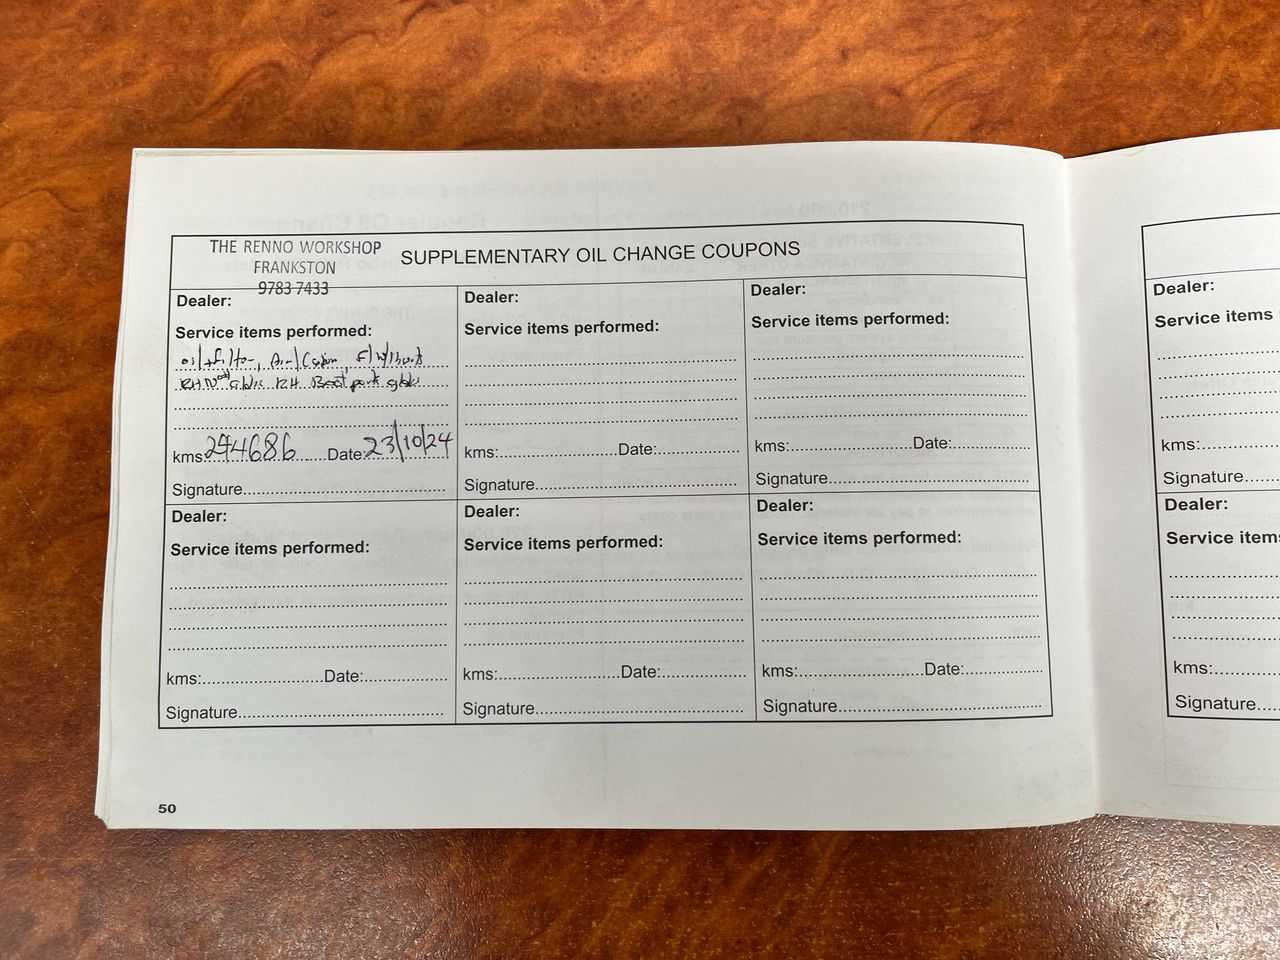 THE RENNO WORKSHOP
FRANKSTON
9783 7433
SUPPLEMENTARY OIL CHANGE COUPONS
Dealer:
Service items performed:
oil + filter,
RH RH park globe
kms: 244686 Date: 23/10/24
Signature
Dealer:
Service items performed:
kms: Date:
Signature
Dealer:
Service items performed:
kms: Date:
Signature
Dealer:
Service items performed:
kms: Date:
Signature
Dealer:
Service items performed:
kms: Date:
Signature
Dealer:
Service items performed:
kms: Date:
Signature
50
Dealer:
Service items
kms:
Signature
Dealer:
Service item
kms:
Signature